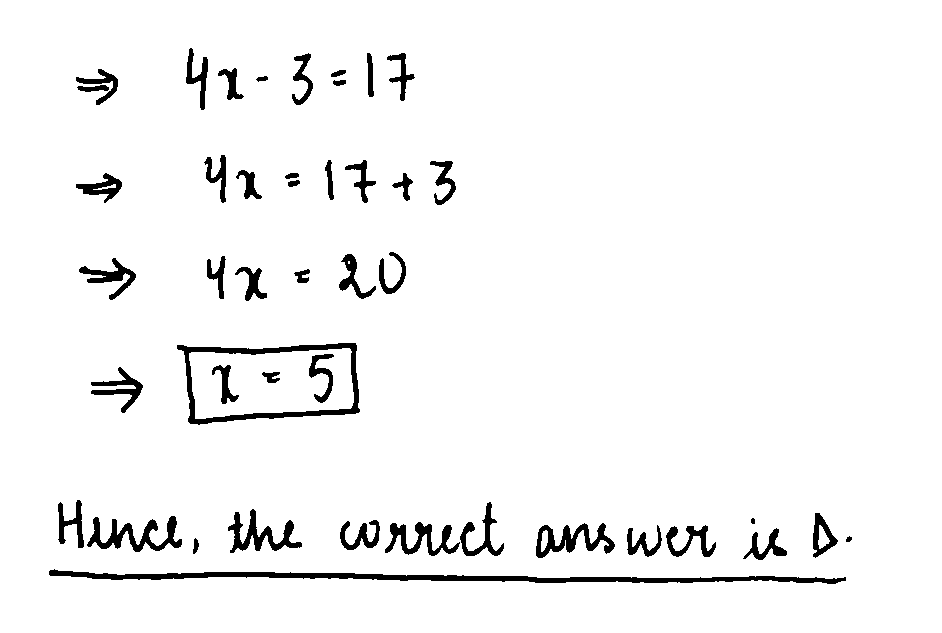 ⇒ 4x - 3 = 17
⇒ 4x = 17 + 3
⇒ 4x = 20
⇒ x = 5
Hence, the correct answer is D.